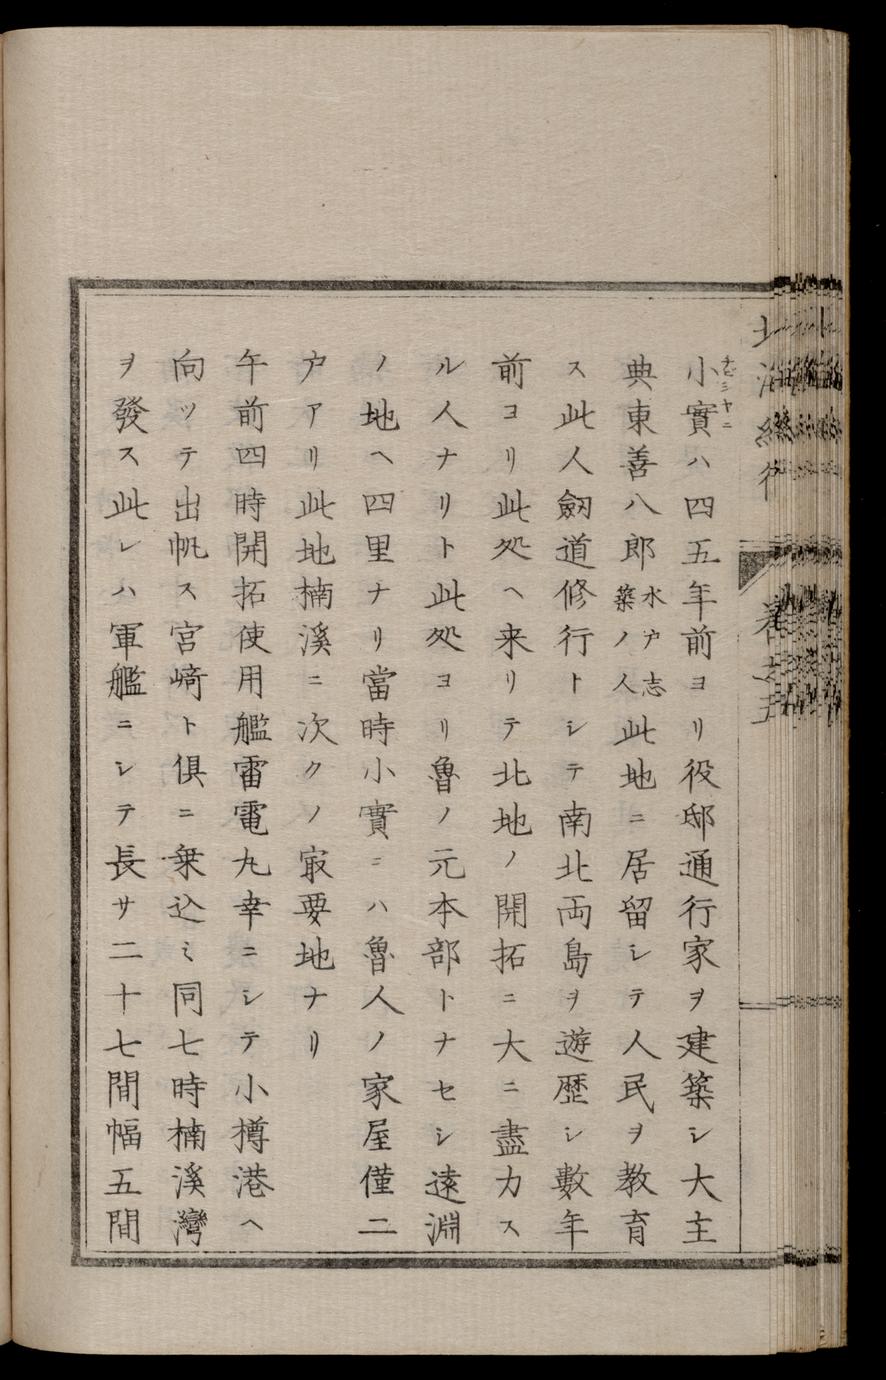 小實ハ四五年前ヨリ役邸通行家ヲ建築シ大主
典東善八郎水戸志築ノ人此地ニ居留シテ人民ヲ教育
ス此人劔道修行トシテ南北両島ヲ遊歴シ數年
前ヨリ此処ヘ来リテ北地ノ開拓ニ大ニ盡力ス
ル人ナリト此処ヨリ魯ノ元本部トナセシ遠淵
ノ地ヘ四里ナリ當時小實ニハ魯人ノ家屋僅二
户アリ此地楠溪ニ次クノ㝡要地ナリ
午前四時開拓使用艦雷電丸幸ニシテ小樽港ヘ
向ッテ出帆ス宮﨑ト俱ニ乗込ミ同七時楠溪灣
ヲ發ス此レハ軍艦ニシテ長サ二十七間幅五間